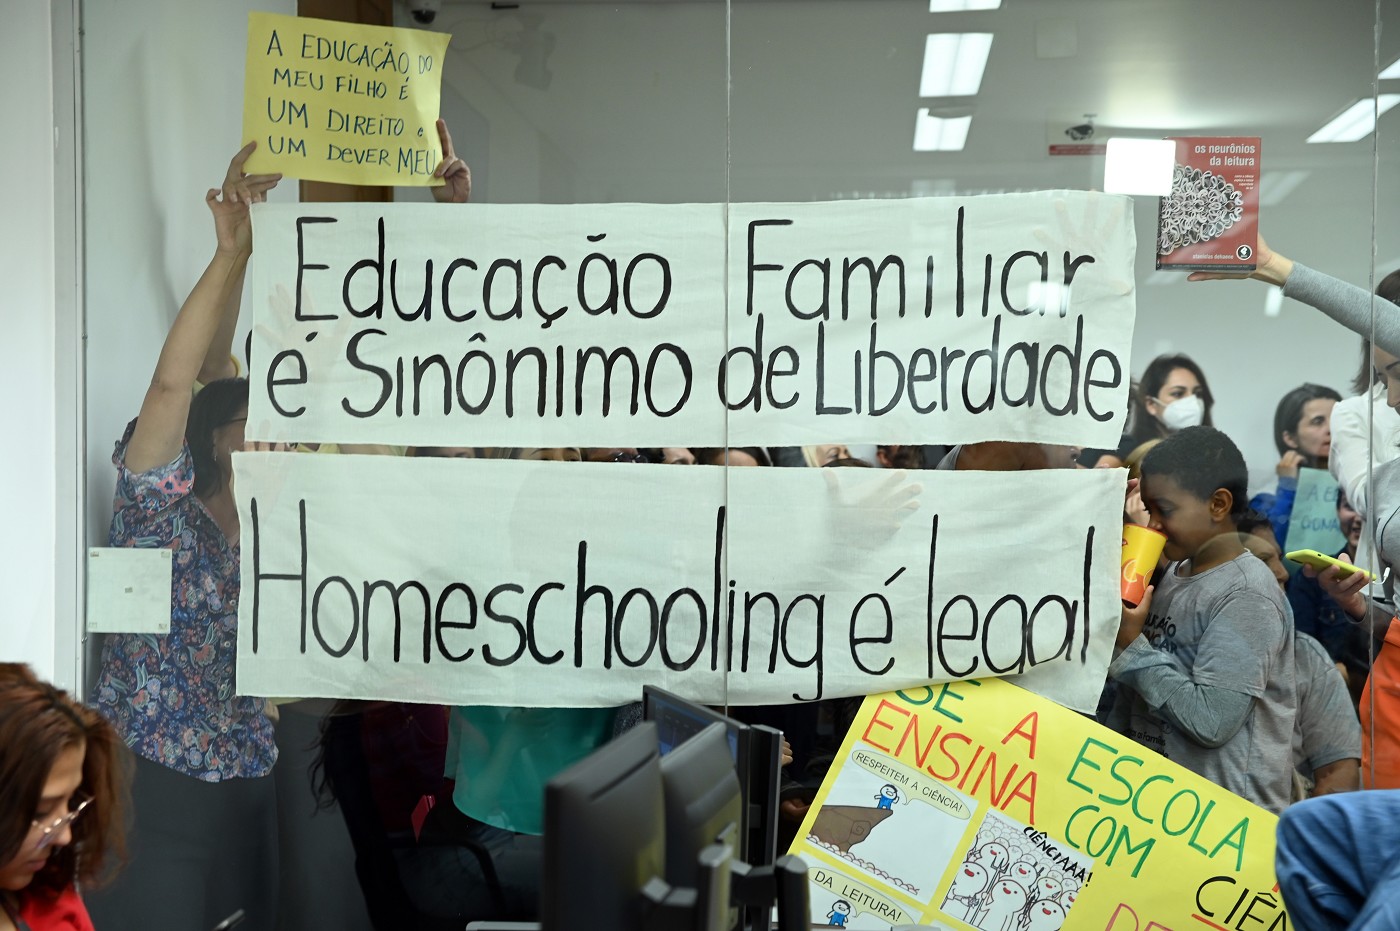 A EDUCAÇÃO DO
MEU FILHO É
UM DIREITO e
UM DEVER MEU
os neurônios
da leitura
Educação Familiar
é Sinônimo de Liberdade
Homeschooling é legal
SE A ESCOLA
ENSINA COM
CIÊN
RESPEITEM A CIÊNCIA!
CIÊNCIAAA!
DA LEITURA!